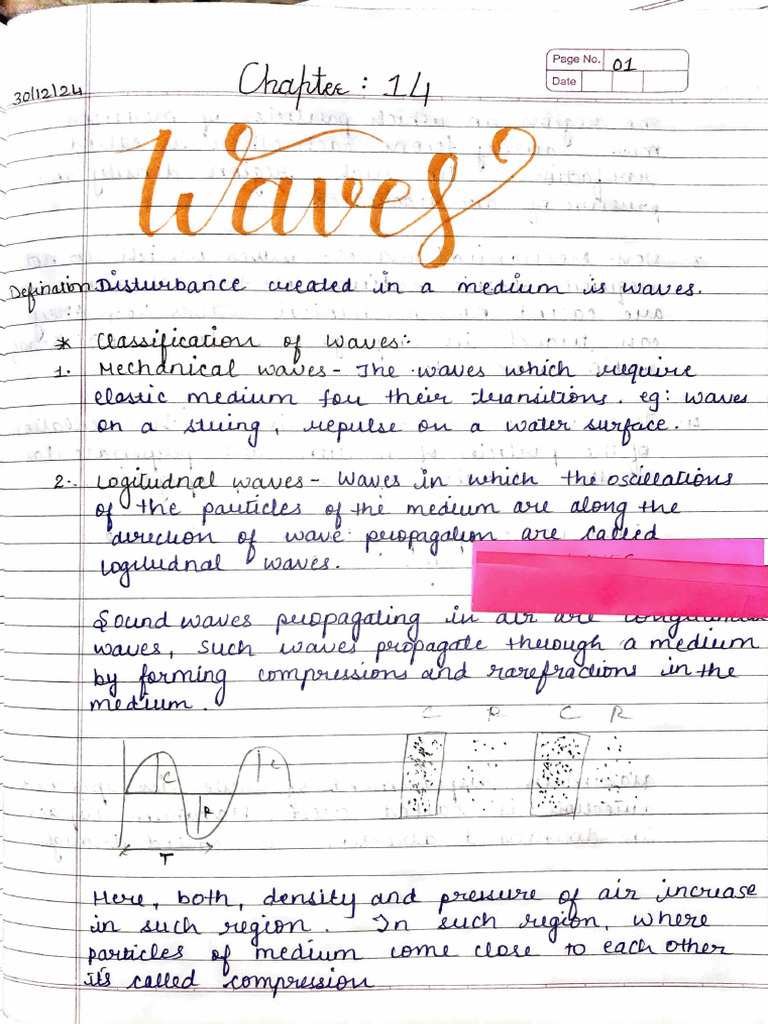 30/12/24
Chapter : 14
Page No. 01
Date
Waves
Defination Disturbance created in a medium is waves.
* Classification of waves:-
1. Mechanical waves - The waves which require
elastic medium for their transitions. eg: waves
on a string, repulse on a water surface.
2. Logitudnal waves - Waves in which the oscillations
of the particles of the medium are along the
direction of wave propagation are called
logitudnal waves.
Sound waves propagating in air are
waves, such waves propagate through a medium
by forming compressions and rarefractions in the
medium.
C R C R
C C
R
T
Here, both, density and pressure of air increase
in such region. In such region, where
particles of medium come close to each other
its called compression